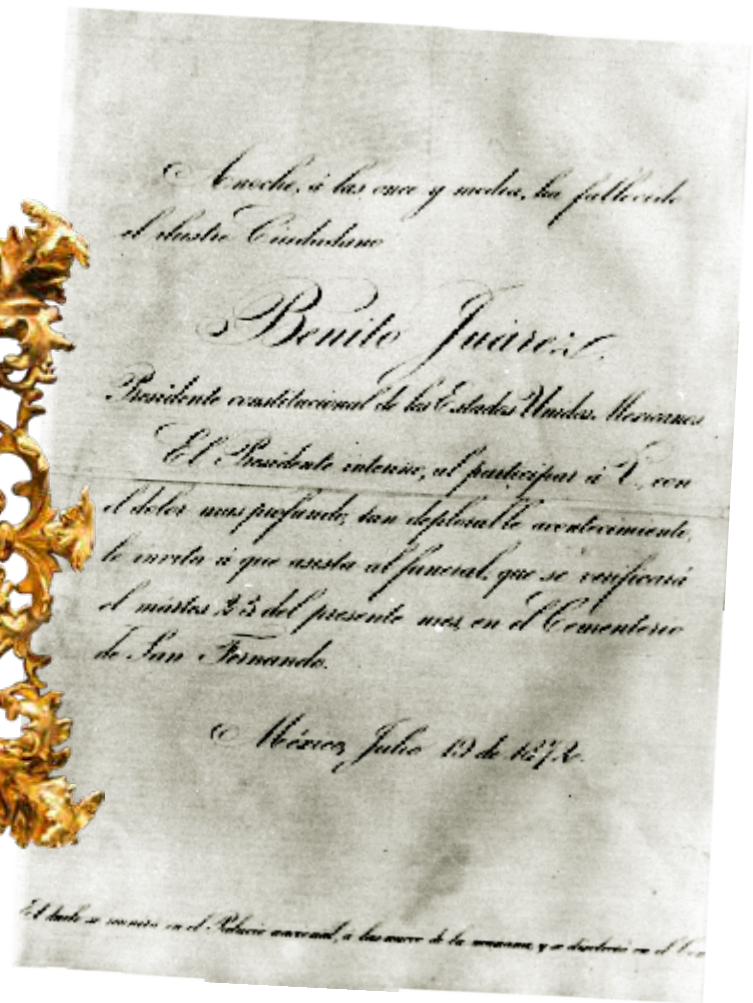 Anoche, á las once y media, ha fallecido
el ilustre Ciudadano
Benito Juárez.
Presidente constitucional de los Estados Unidos Mexicanos.
El Presidente interino, al participar á V., con
el dolor mas profundo, tan deplorable acontecimiento,
le invita á que asista al funeral, que se verificará
el mártes 23 del presente mes, en el Cementerio
de San Fernando.
México, Julio 19 de 1872.
El duelo se reunirá en el Palacio nacional, a las nueve de la mañana, y se disolverá en el